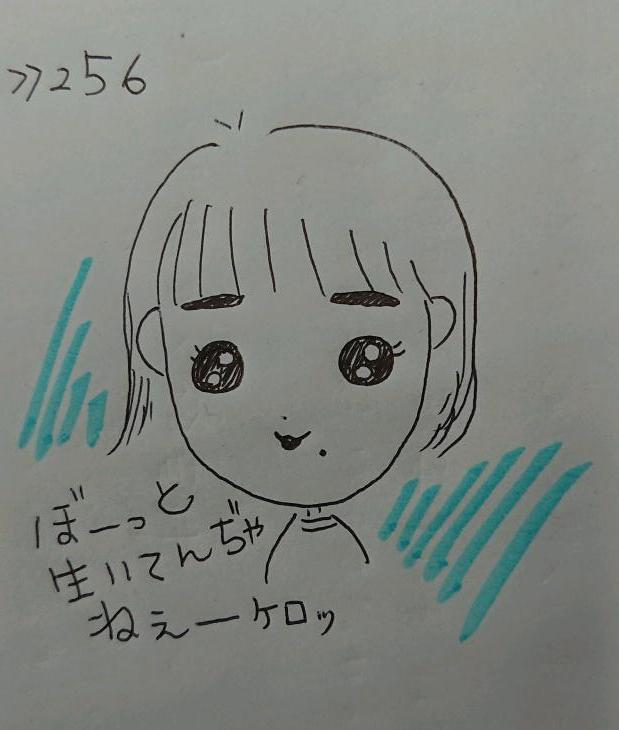 >>256
ぼーっと
生いてんぢゃ
ねぇーケロッ